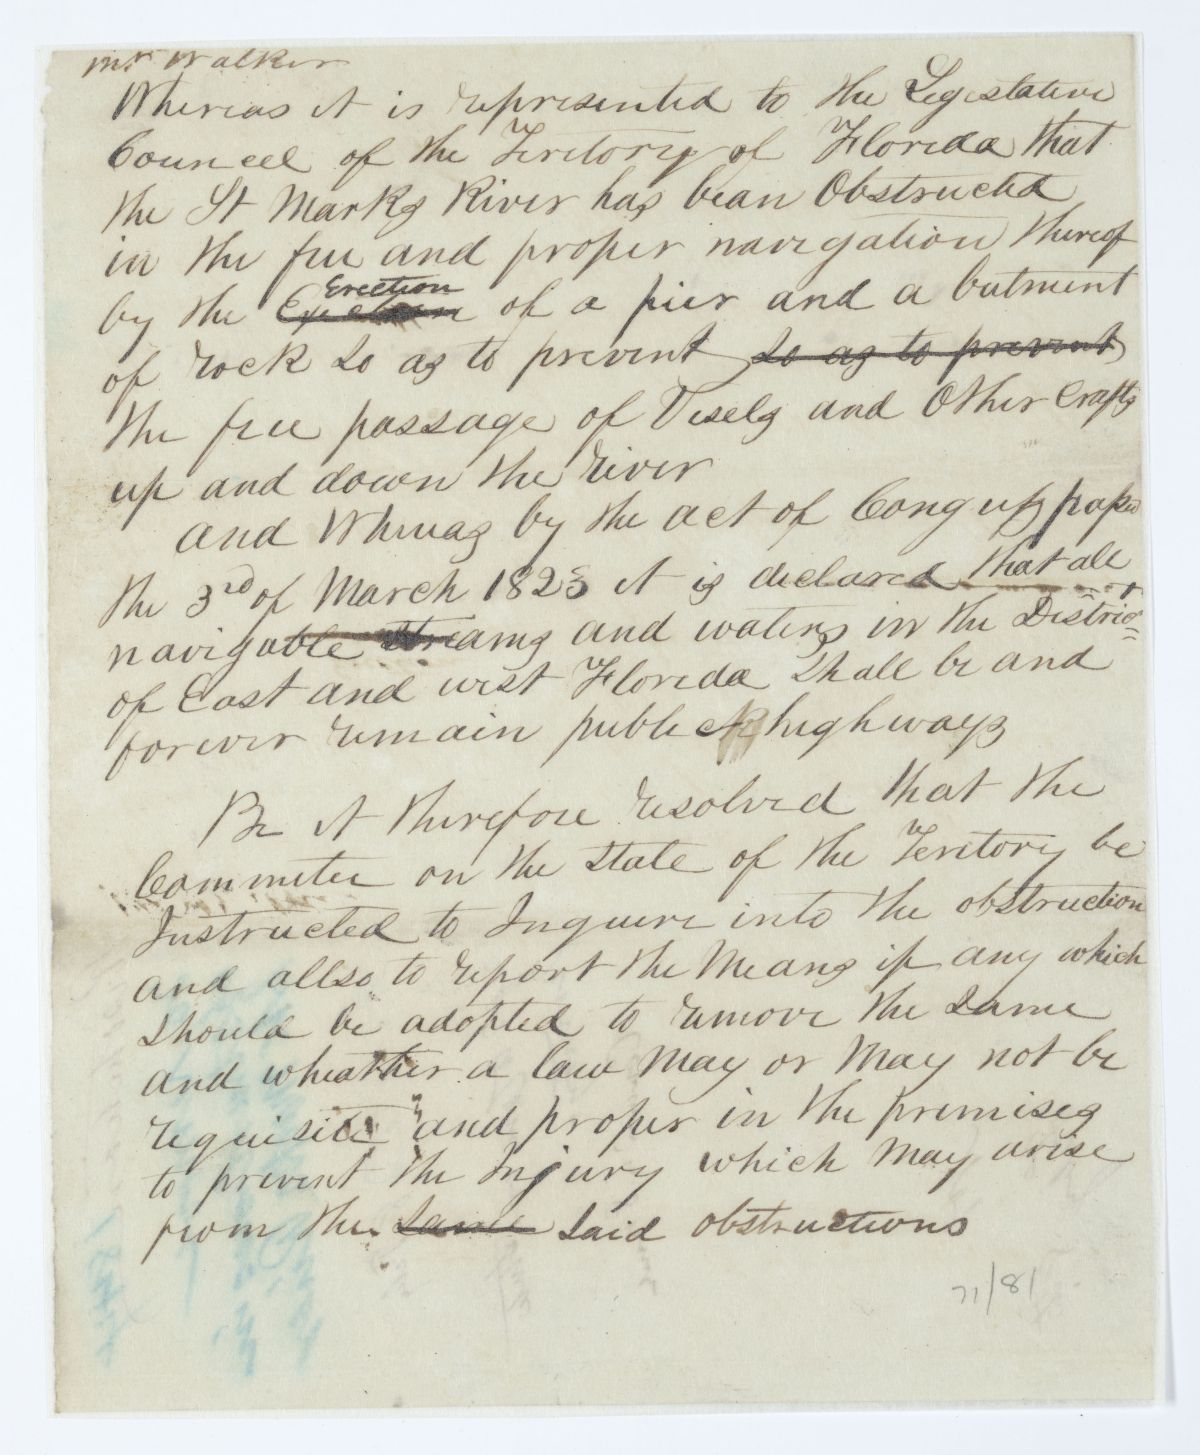 Mr Walker
Whereas it is represented to the Legislative
Councel of the Teritory of Florida that
the St Marks River has bean Obstructed
in the free and proper navigation thereof
by the Erection of a pier and a butment
of rock so as to prevent so as to prevent
the free passage of Vesels and Other Crafts
up and down the river
and Whereas by the act of Congress passed
the 3rd of March 1823 it is declared that all
navigable streams and waters in the Distric=
of East and west Florida shall be and
forever remain public highways
Be it therefore resolved that the
Committee on the state of the Teritory be
Instructed to Inquire into the obstruction
and allso to report the Means if any which
should be adopted to remove the same
and wheather a law may or may not be
requisite and proper in the premises
to prevent the Injury which may arise
from the same said obstructions
71/81